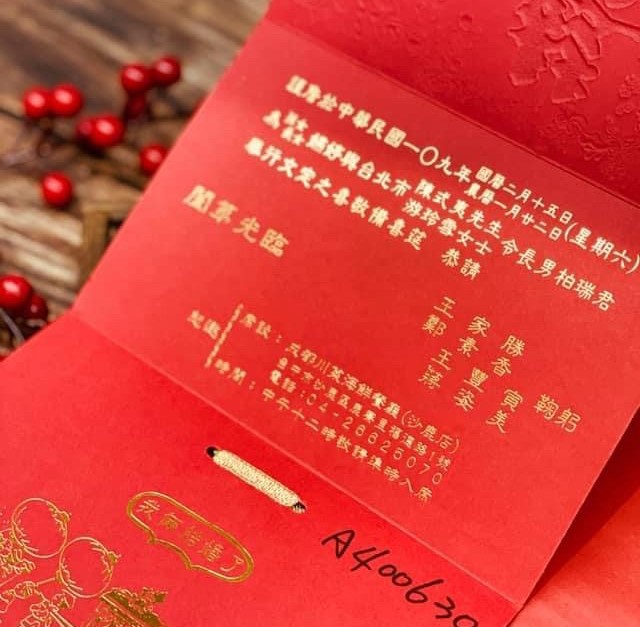 謹詹於中華民國一〇九年 國曆二月十五日 農曆一月廿二日 (星期六)
與台北市 陳式夷先生 游玲露女士 令長男柏瑞君
舉行文定之喜敬備喜筵 恭請
闔第光臨
王家勝
鄭素香
王豐寅
蔣姿美
鞠躬
席設：成都川菜海鮮餐廳(沙鹿店)
電話：04-26625070
時間：中午十二時敬請準時入席
我們結婚了
A400630